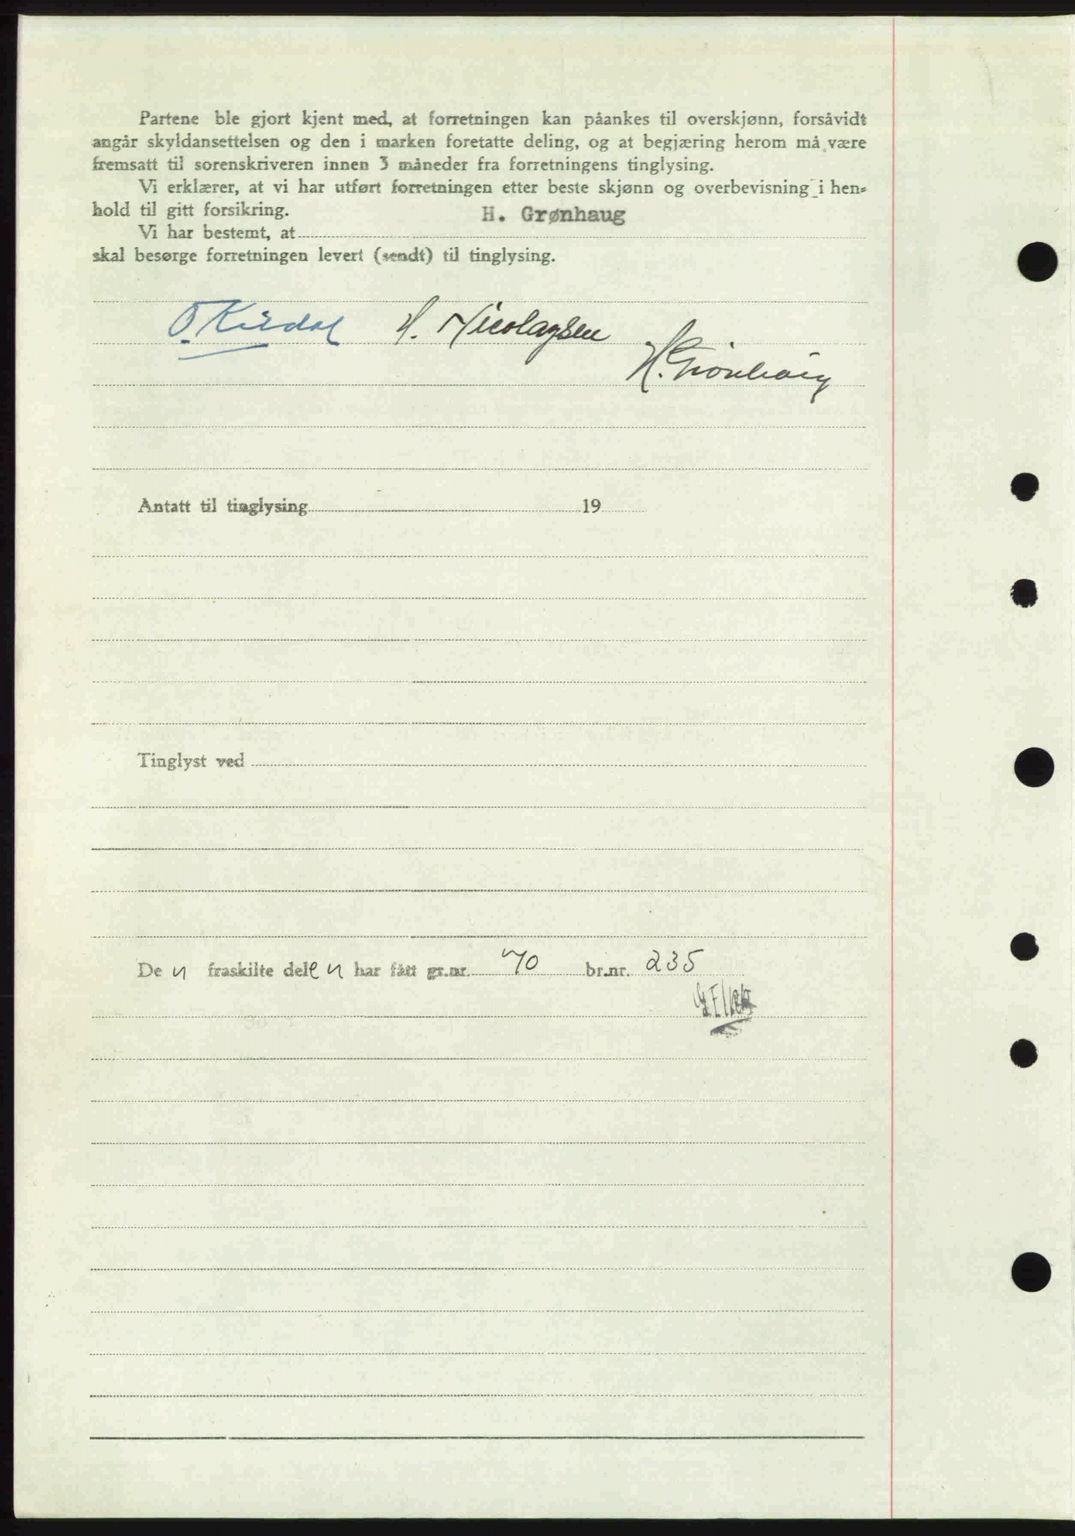 Partene ble gjort kjent med, at forretningen kan påankes til overskjønn, forsåvidt
angår skyldansettelsen og den i marken foretatte deling, og at begjæring herom må være
fremsatt til sorenskriveren innen 3 måneder fra forretningens tinglysing.
Vi erklærer, at vi har utført forretningen etter beste skjønn og overbevisning i hen-
hold til gitt forsikring.
H. Grønhaug
Vi har bestemt, at
skal besørge forretningen levert (sendt) til tinglysing.
H. Nicolaysen
H. Grønhaug
Antatt til tinglysing 19
Tinglyst ved
De n fraskilte delen har fått gr.nr. 70 br.nr. 235